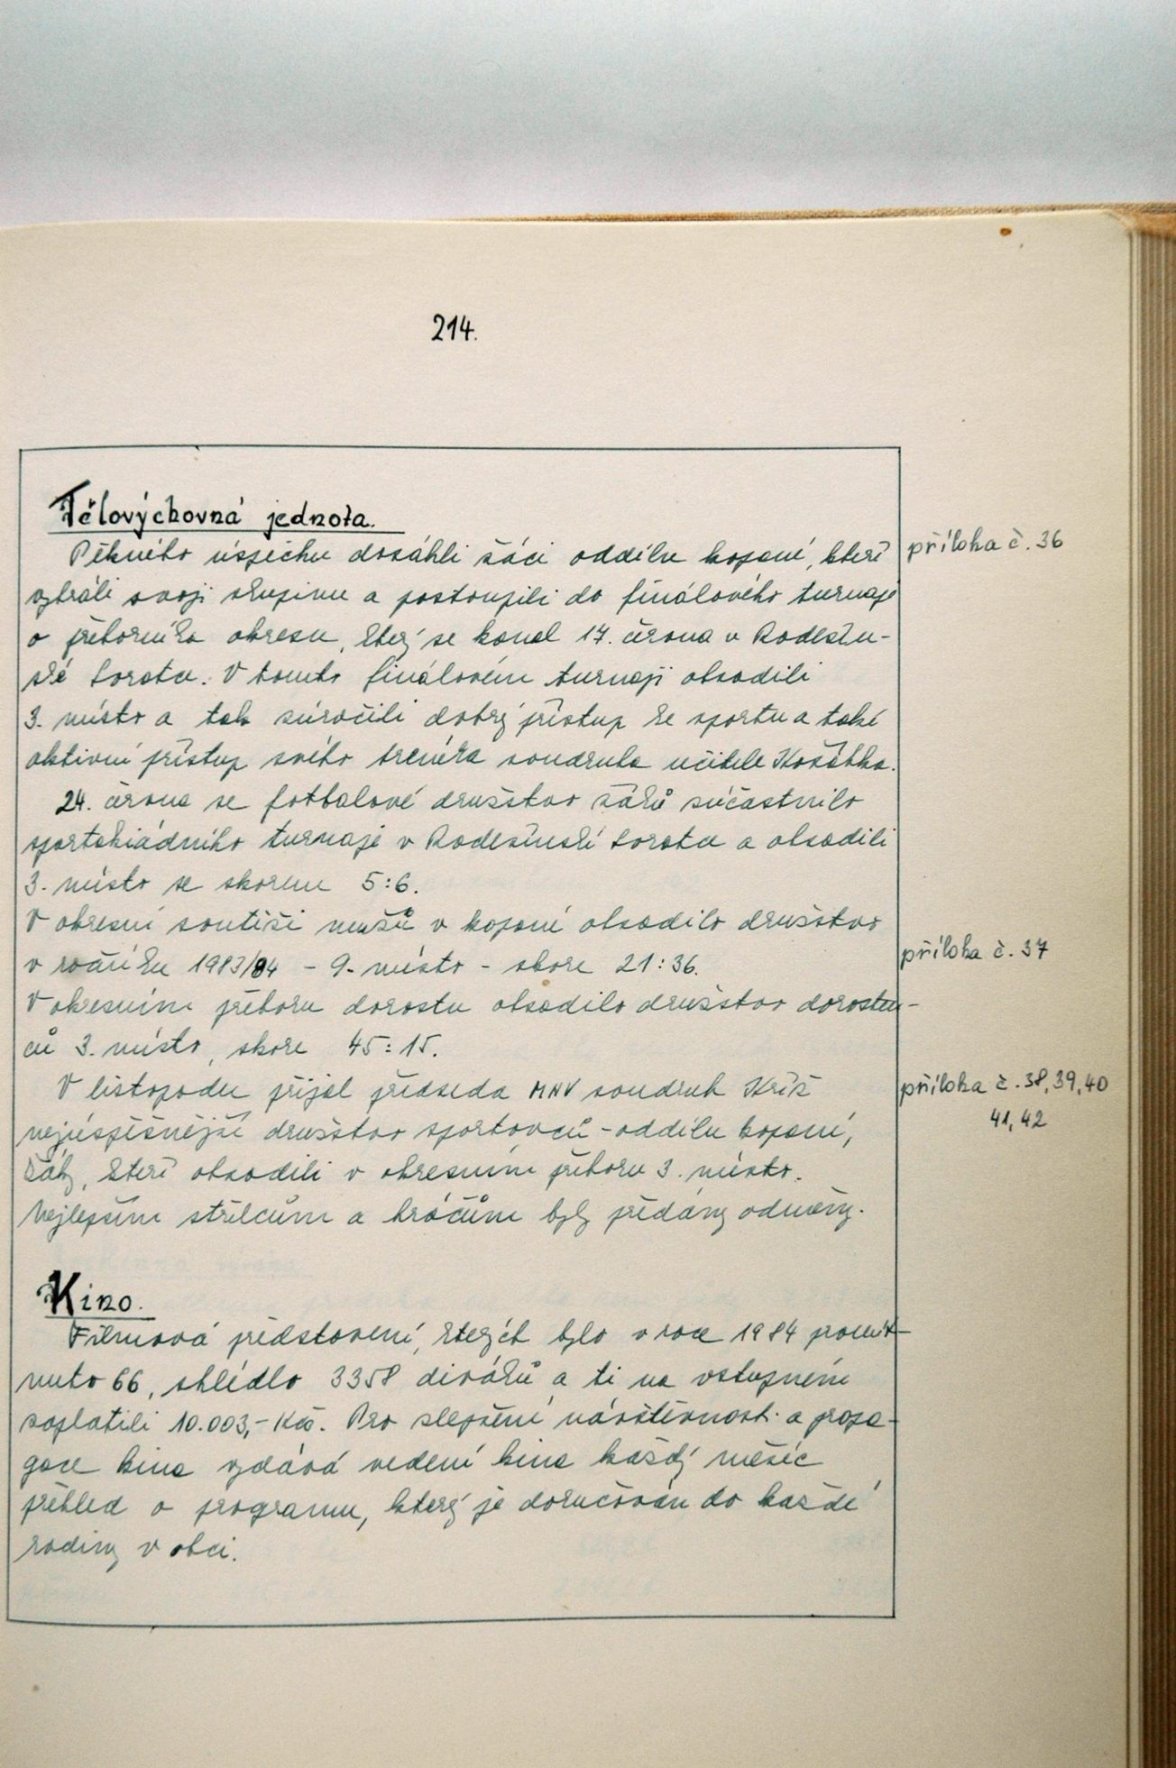 214.
Tělovýchovná jednota.
Pěkného úspěchu dosáhli žáci oddílu kopané, kteří
příloha č. 36
vyhráli svoji skupinu a postoupili do finálového turnaje
o přeborníka okresu, který se konal 17. června v Radešín-
ské Svratce. V tomto finálovém turnaji obsadili
3. místo a tak zúročili dobrý přístup ke sportu a také
aktivní přístup svého trenéra soudruha učitele
24. června se fotbalové družstvo žáků súčastnilo
spartakiádního turnaje v Radešínské Svratce a obsadili
3. místo se skorem 5:6.
V okresní soutěži mužů v kopané obsadilo družstvo
v ročníku 1983/84 - 9. místo - skore 21:36.
příloha č. 37
V okresním přeboru dorostu obsadilo družstvo dorosten-
ců 3. místo, skore 45:15.
V listopadu přijal předseda MNV soudruh Kříž
příloha č. 38, 39, 40
41, 42
nejúspěšnější družstvo sportovců - oddílu kopané,
žáky, kteří obsadili v okresním přeboru 3. místo.
Nejlepším střelcům a hráčům byly předány odměny.
Kino.
Filmová předstovení, kterých bylo v roce 1984 promít-
nuto 66, shlédlo 3358 diváků a ti na vstupném
zaplatili 10.003,- Kčs. Pro zlepšení návštěvnosti a propa-
gace kina vydává vedení kina každý měsíc
přehled o programu, který je doručován do každé
rodiny v obci.